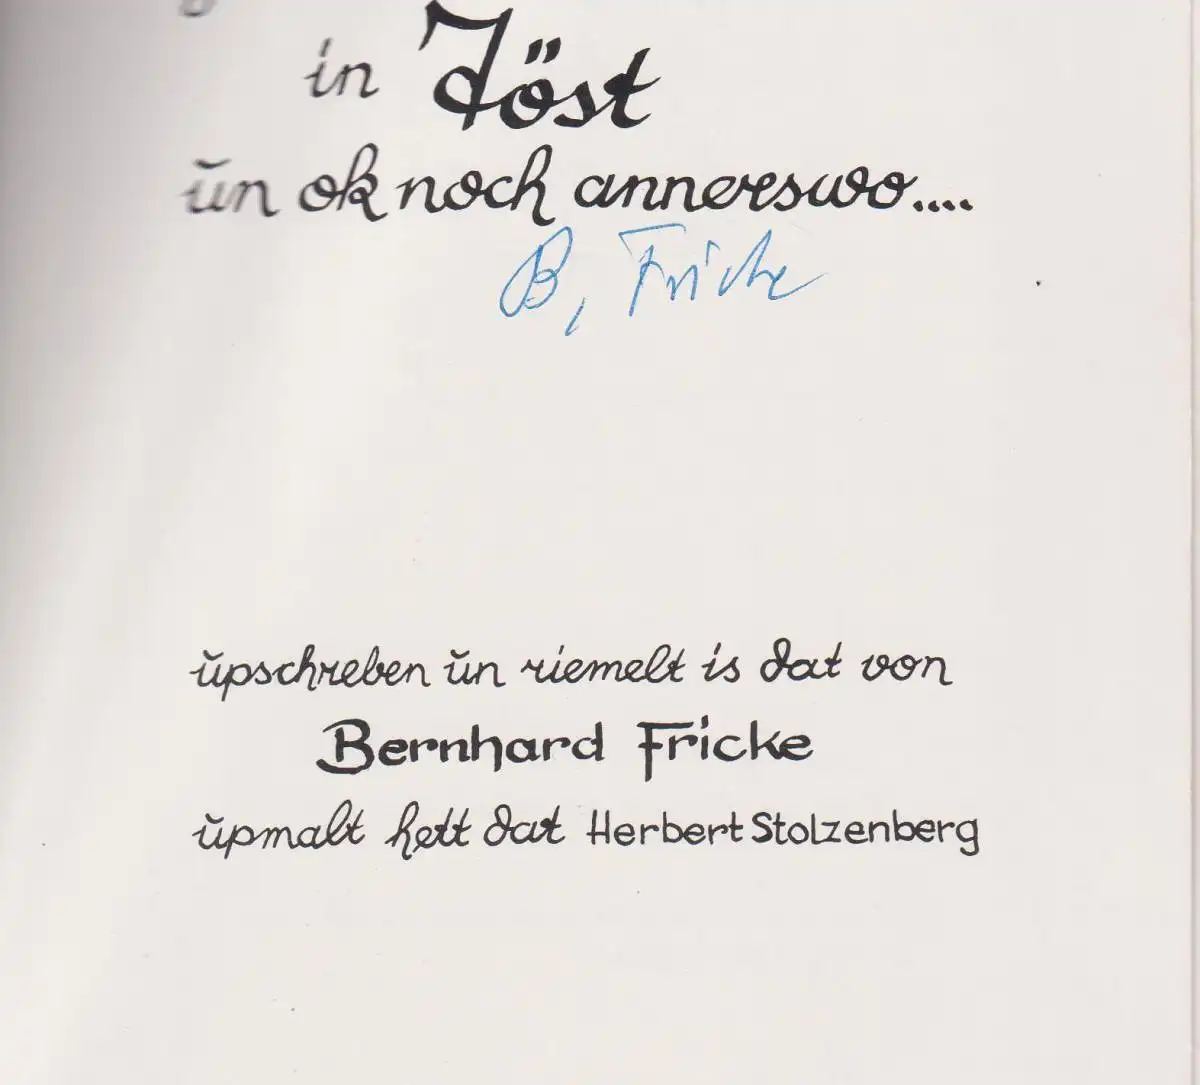 in Töst
ŭn ok noch annerswo....
B, Fricke
ŭpschreben ŭn riemelt is dat von
Bernhard Fricke
ŭpmalt hett dat Herbert Stolzenberg